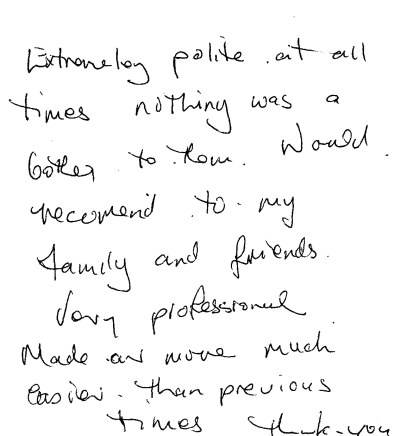 Extremeley polite at all
times nothing was a
bother to them. Would
recomend to my
family and friends.
Very professional
Made our move much
easier. than previous
times thank-you